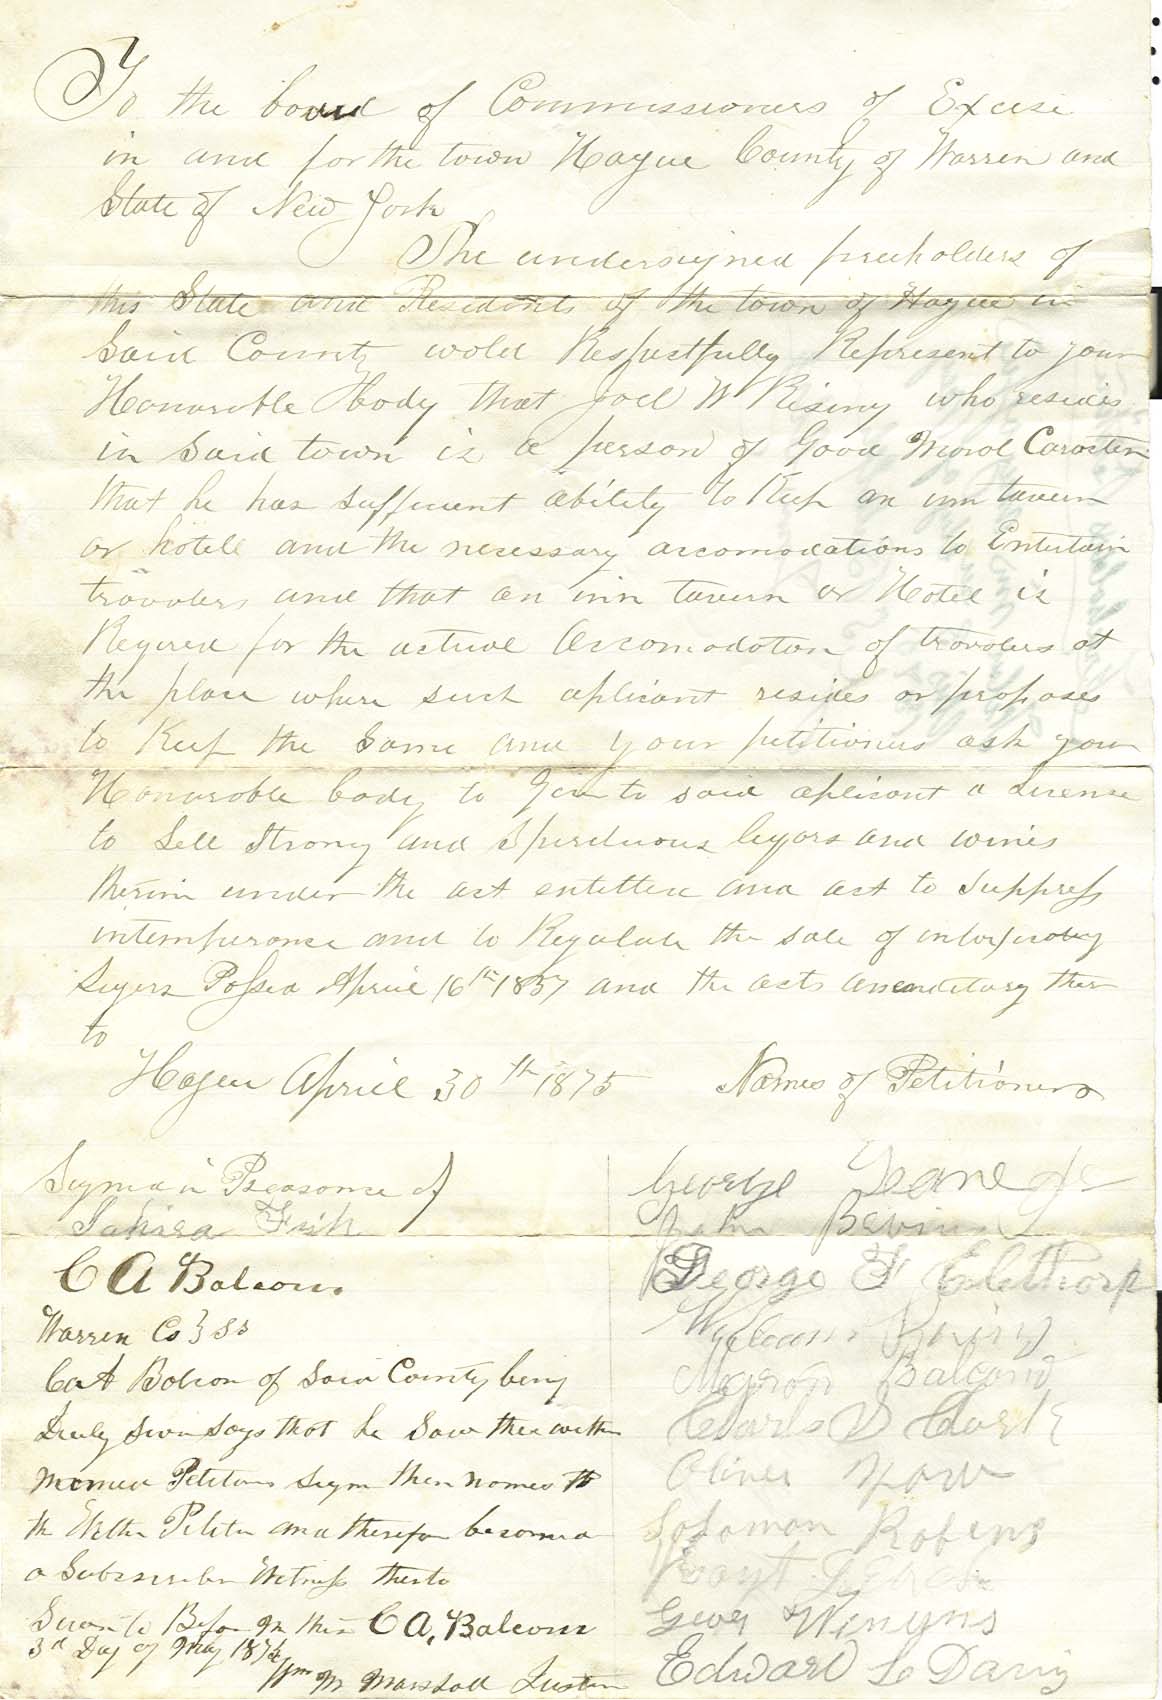 To the board of Commissioners of Excise
in and for the town Hague County of Warren and
State of New York
The undersigned freeholders of
this State and Residents of the town of Hague in
Said County wold Respectfully Represent to your
Honorable Body that Joel W Rising who resides
in Said town is a person of Good Moral Caracter
that he has sufficient ability to Keep an inn tavern
or hotell and the necessary accomodations to Entertain
travolers and that an inn tavern or Hotel is
Reqired for the actual Accomodaton of travolers at
the place where such aplicant resides or proposes
to Keep the Same and your petitioners ask your
Honorable body to Give to said aplicant a License
to Sell Strong and Spirituous liqors and wines
therin under the act entitled and act to Suppress
intemperance and to Regulate the sale of
Liqers Passed April 16th 1857 and the acts amendatory ther
to
Hague April 30th 1875 Names of Petitioners
Signed in Presance of
Fish
C A Balcom
Warren Co } SS
C A Balcom of Said County being
Duly Sworn Says that he Saw the within
Petitions Sign their names to
the Petition and therefor becomes
a Subscriber Witness therto
Sworn to Before Me this C A, Balcom
3rd Day of May 1875
Wm M Marshall Justice
George
John Bevins
George F Elethorp
William Rising
Myron Balcom
Charls Clark
Oliver Yaw
Solomon Robens
Hoyt
Geor Wenyns
Edward L Davis